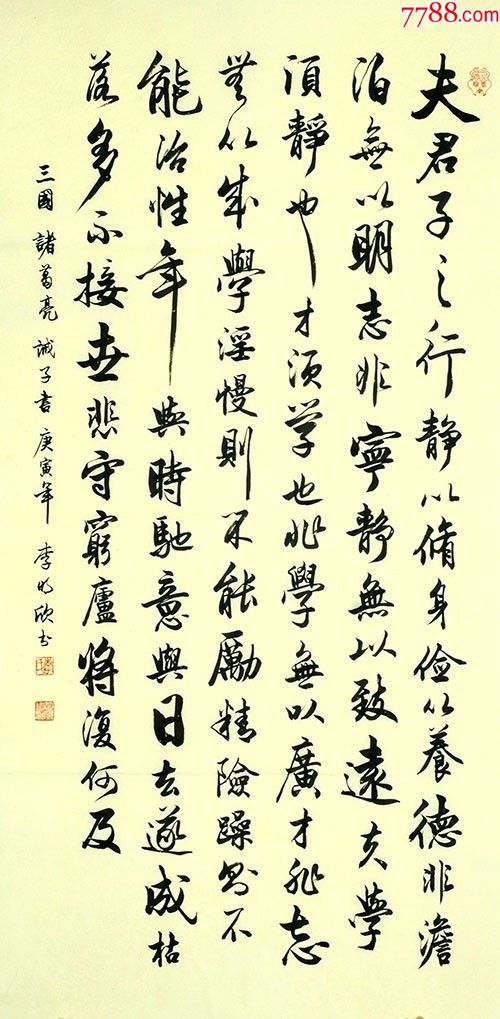 7788.com
夫君子之行靜以脩身儉以養德非澹
泊無以明志非寧靜無以致遠夫學
須靜也才須學也非學無以廣才非志
無以成學淫慢則不能勵精險躁則不
能治性年與時馳意與日去遂成枯
落多不接世悲守窮廬將復何及
三國 諸葛亮 誡子書 庚寅年 李明欣书